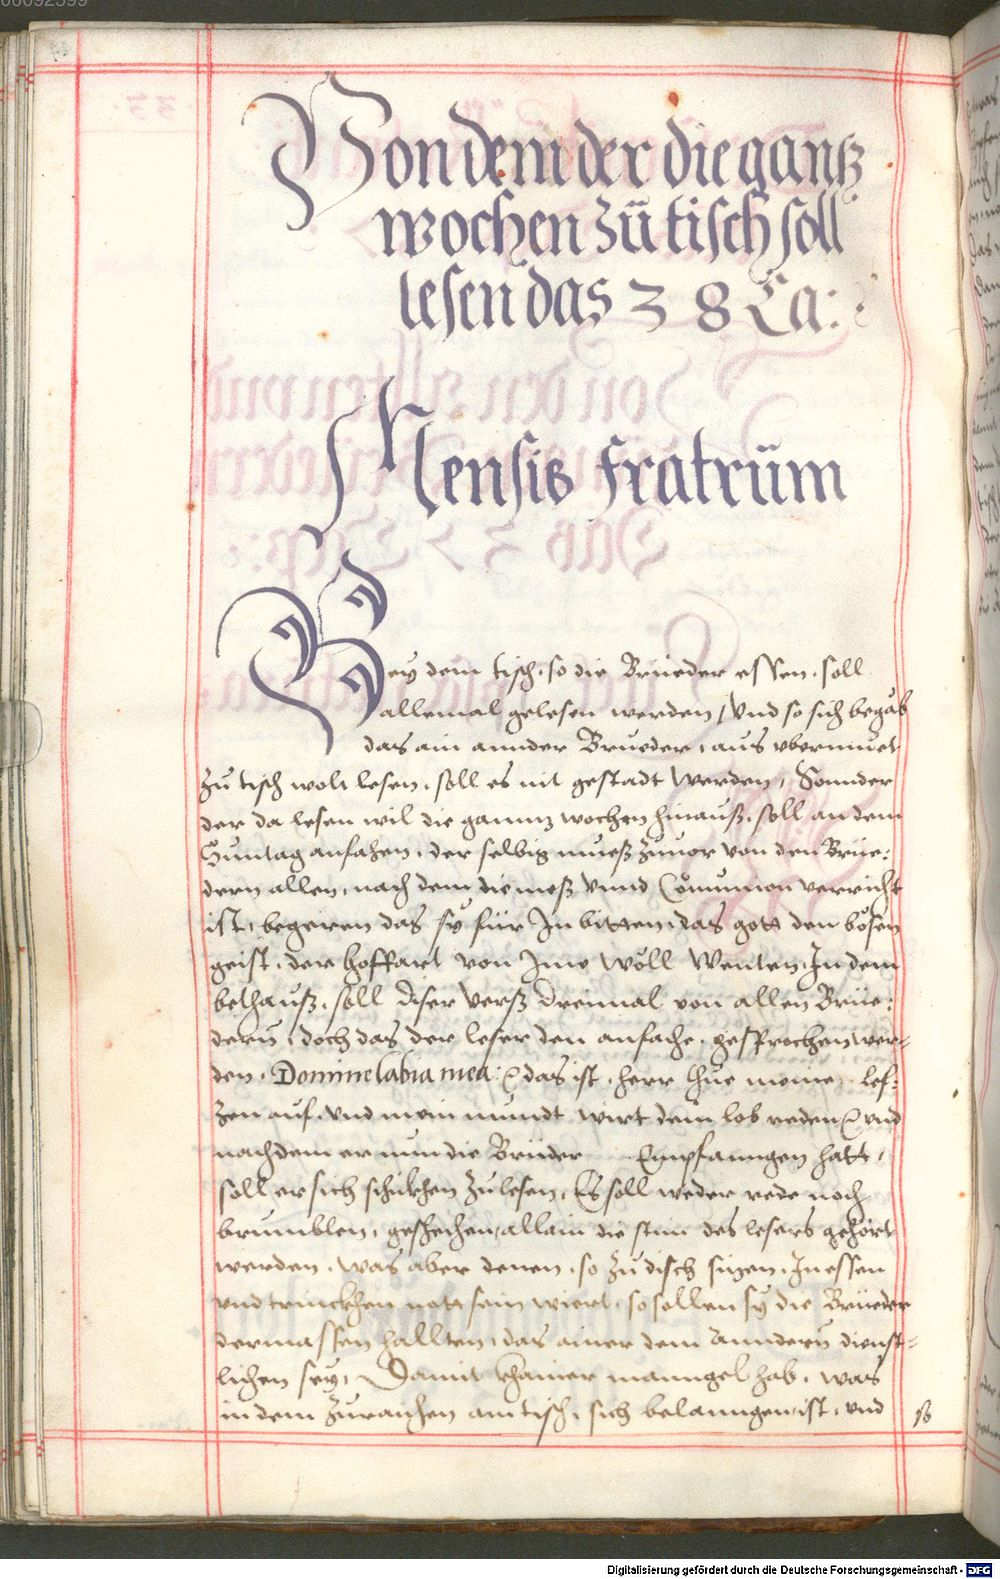 Von dem der die gantz
wochen zü tisch soll
lesen das 38 Ca:
Mensis fratrüm
Bey dem tisch, so die Brüeder essen, soll
allemal gelesen werden, Vnd so sich begäb
das ain annder Brueder, aus vbermuet
zu tisch wolt lesen, soll es nit gestadt werden, Sonnder
der da lesen wil die gannz wochen hinauß, soll an dem
Suntag anfahen, der selbig mueß zuuor von den Brüe:
dern allen, nach dem die meß vnnd Comunion verricht
ist, begeren das sy für In bitten, das gott den bösen
geist, der hoffart von Ime wöll wenten, In dem
bethauß, soll diser Verß dreimal von allen Brüe:
dern, doch das der leser den anfache, gesprochen wer=
den, Domine labia mea: das ist, herr thue meine lef:
zen auf, vnd mein mundt wirt dein lob reden vnd
nachdem er nun die Brüder Empfanngen hatt,
soll er sich schikhen zu lesen, Es soll weder rede noch
brumblen, geschechen, allain die stim des lesers gehört
werden, was aber denen, so zu disch sizen, In essen
vnd trinckhen nott sein wiert, so sollen sy die Brüeder
dermassen hallten, das ainer dem Anndern dienst=
lichen sey, Damit khainer manngel hab, was
in dem zuraichen am tisch, sich belanngen ist, vnd
so
Digitalisierung gefördert durch die Deutsche Forschungsgemeinschaft - DFG